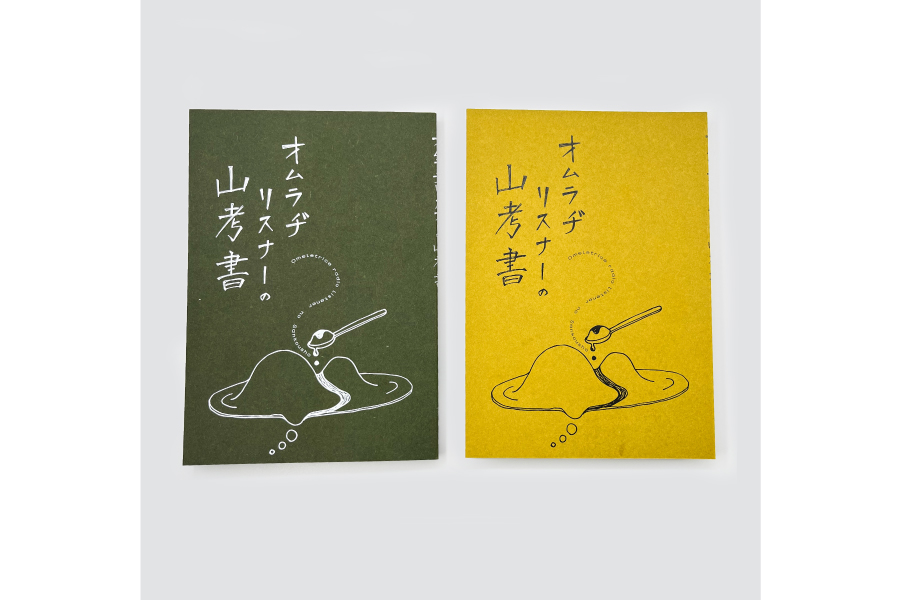 オムラヂ
リスナーの
山考書
Omeletrice radio Listener no Sankousho
オムラヂ
リスナーの
山考書
Omeletrice radio Listener no Sankousho